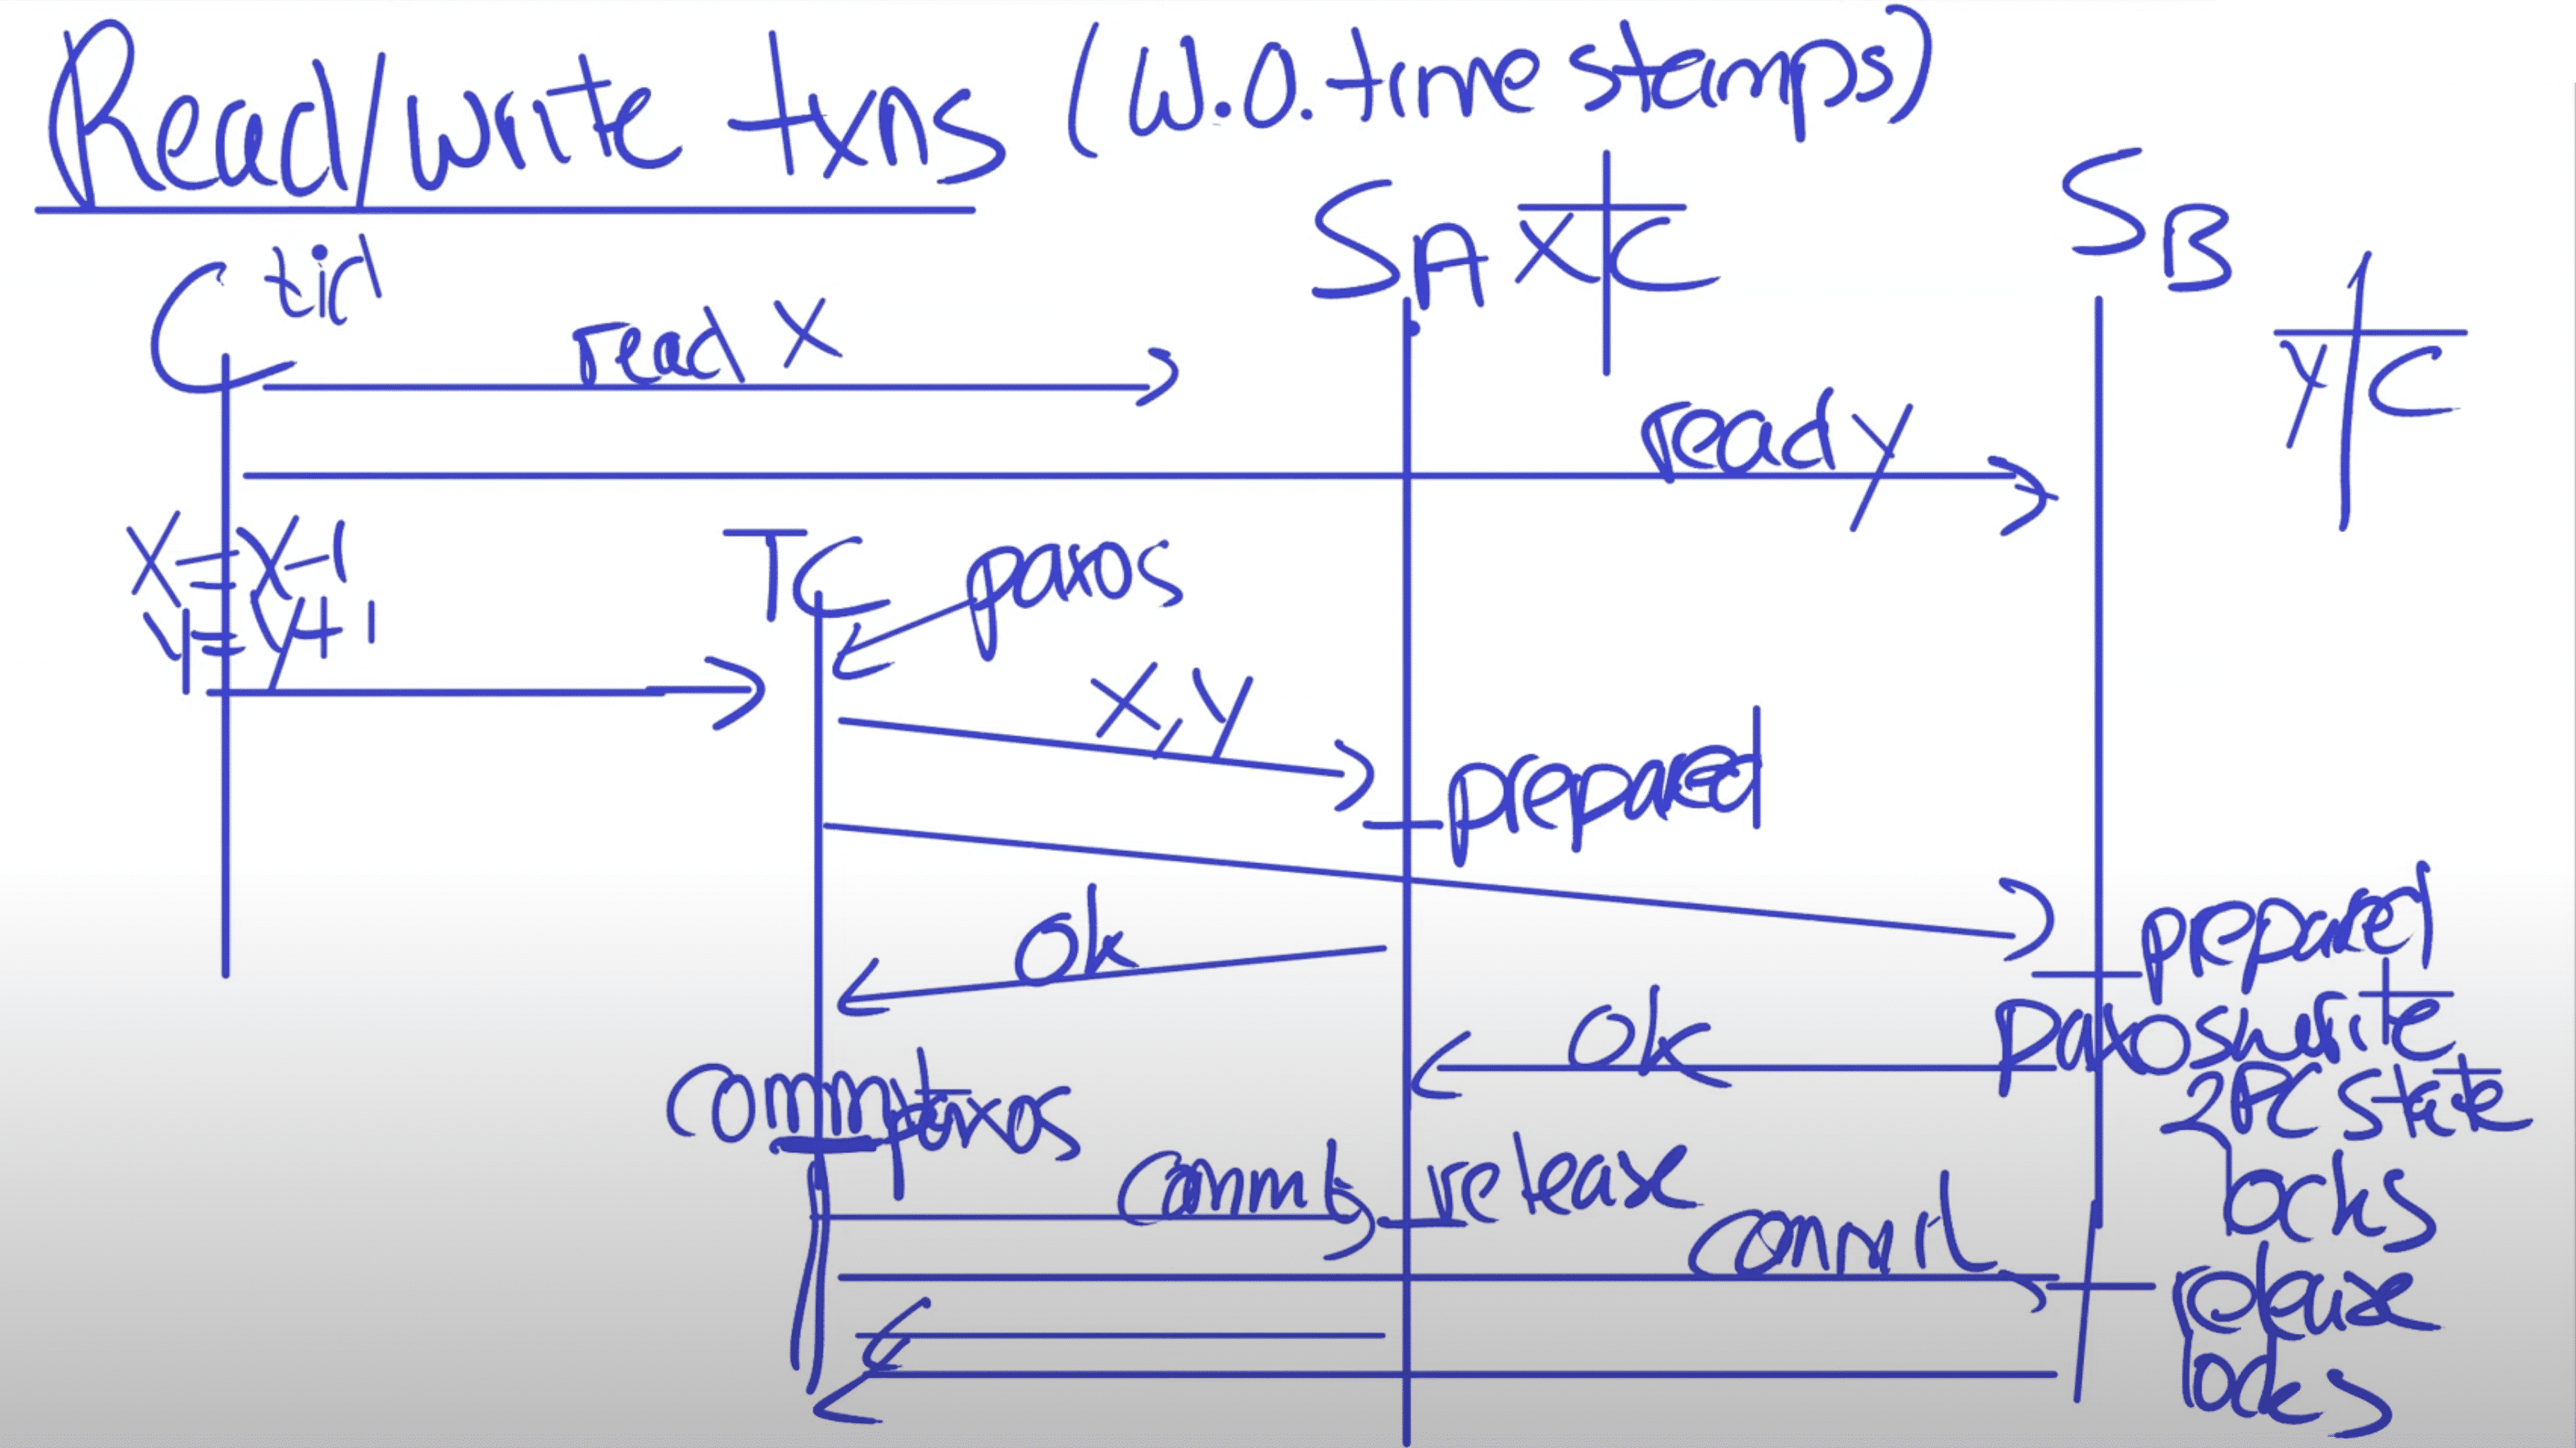 Read/write txns (W.O. timestamps)
C tid
SA X C
SB
Y C
read X
read Y
X=X-1
Y=Y+1
TC
paxos
X,Y
prepared
prepared
ok
ok
paxos write
2PC state
locks
commit paxos
commit
release
commit
release
locks